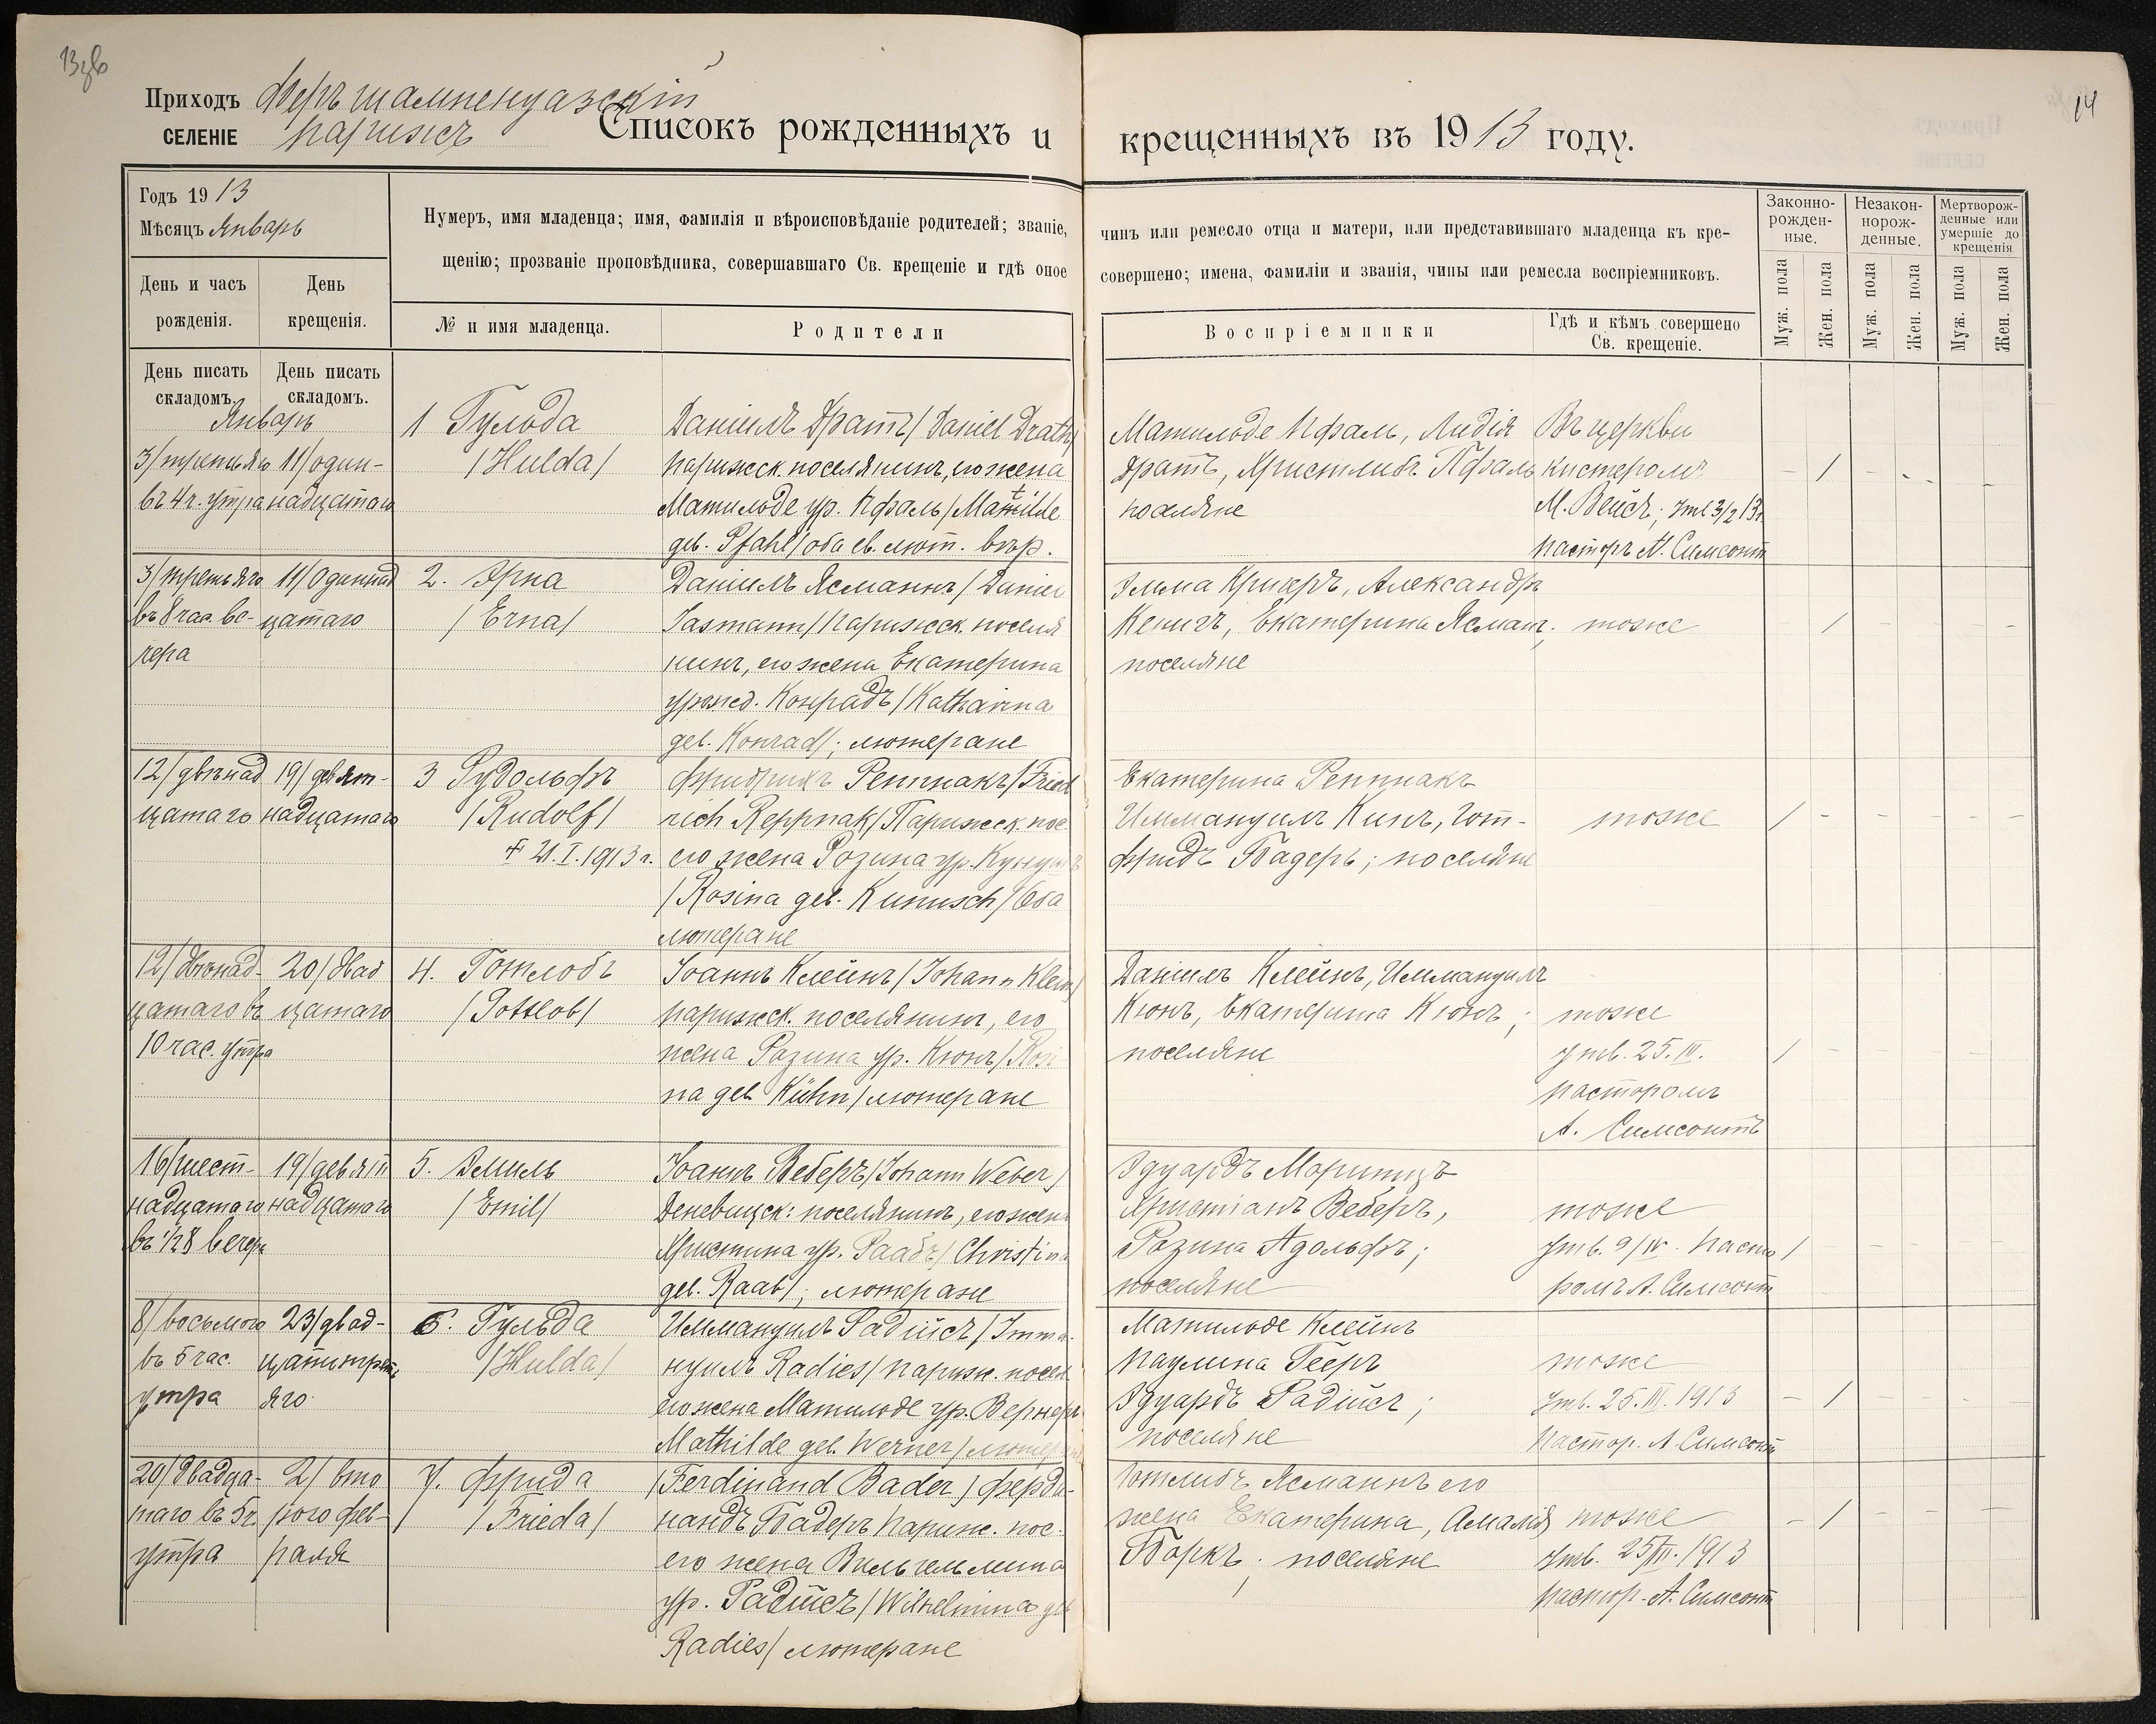 13 об
14
Приходъ Феръ шампенуазскій
СЕЛЕНІЕ парижъ
Списокъ рожденныхъ и крещенныхъ въ 1913 году.
Годъ 1913
Мѣсяцъ Январь
День и часъ рожденія.
День крещенія.
Нумеръ, имя младенца; имя, фамилія и вѣроисповѣданіе родителей; званіе, чинъ или ремесло отца и матери, или представившаго младенца къ кре-
щенію; прозваніе проповѣдника, совершавшаго Св. крещеніе и гдѣ оное совершено; имена, фамиліи и званія, чины или ремесла воспріемниковъ.
№ и имя младенца.
Родители
Воспріемники
Гдѣ и кѣмъ совершено
Св. крещеніе.
Законно-
рожден-
ные.
Незакон-
норож-
денные.
Мертворож-
денные или
умершіе до
крещенія
Муж. пола
Жен. пола
Муж. пола
Жен. пола
Муж. пола
Жен. пола
День писать
складомъ.
День писать
складомъ.
Январь
3/третьяго
въ 4 ч. утра
11/один-
надцатаго
1 Гульда
/Hulda/
Даніилъ Дратъ/Daniel Drath/
парижск. поселянинъ, его жена
Матильде ур. Пфаль/Matilde
geb. Pfahl/оба ев. лют. вѣр.
Матильде Пфаль, Лидія
Дратъ, Христлибъ Пфаль
поселяне
Въ церкви
кистеромъ
М. Вейсъ; утв 3/2 13г
пасторъ А. Симсонъ
- / - - -
3/третьяго
въ 8 час. ве-
чера
11/Одиннад
цатаго
2. Эрна
/Erna/
Даніилъ Ясманнъ/Daniel
Jasmann/парижск. поселя
нинъ, его жена Екатерина
урожд. Конрадъ/Katharina
geb. Konrad/; лютеране
Эмма Кригеръ, Александръ
Кенигъ, Екатерина Ясманъ;
поселяне
тоже
/ - - - -
12/двѣнад
цатаго
19/девят-
надцатаго
3 Рудольфъ
/Rudolf/
† 21.I.1913 г.
Фридрихъ Реппнакъ/Fried
rich Reppnak/Парижск. пос.
его жена Розина ур. Кунушъ
/Rosina geb. Kunusch/Оба
лютеране
Екатерина Реппнакъ
Иммануилъ Кинъ, Гот-
фридъ Бадеръ; поселяне
тоже
/ - - - - -
12/двѣнад-
цатаго въ
10 час. утра
20/двад
цатаго
4. Готлобъ
/Gottlob/
Іоаннъ Клейнъ/Johann Klein/
парижск. поселянинъ, его
жена Розина ур. Кюнъ/Rosi
na geb Kühn/лютеране
Даніилъ Клейнъ, Иммануилъ
Кюнъ, Екатерина Кюнъ;
поселяне
тоже
утв. 25.III.
пасторомъ
А. Симсонъ
/ - - - -
16/шест-
надцатаго
въ ½8 вечера
19/девят
надцатаго
5. Эмиль
/Emil/
Іоаннъ Веберъ/Johann Weber/
Деневицск: поселянинъ, его жена
Христина ур. Раабъ/Christina
geb. Raab/; лютеране
Эдуардъ Морицъ
Христіанъ Веберъ,
Розина Адольфъ;
поселяне
тоже
утв. 9/IV. пасто
ромъ А. Симсонъ
/ - - - -
8/восьмого
въ 5 час.
утра
23/двад-
цатитреть
яго
6. Гульда
/Hulda/
Иммануилъ Радійсъ/Imma
нуилъ Radies/париж. посел.
его жена Матильде ур. Вернеръ
Mathilde geb. Werner/лютеране
Матильде Клейнъ
паулина Гееръ
Эдуардъ Радійсъ;
поселяне
тоже
утв. 25.III.1913
пастор. А. Симсонъ
- / - - -
20/двадца-
таго въ 5 ч.
утра
2/вто
рого фев-
раля
7. Фрида
/Frieda/
/Ferdinand Bader/Ферди-
нандъ Бадеръ париж. пос.
его жена Вильгельмина
ур. Радійсъ/Wilhelmina geb
Radies/лютеране
Готлибъ Ясманнъ его
жена Екатерина, Амалія
Боркъ; поселяне
тоже
утв. 25/III.1913
пастор. А. Симсонъ
- / - - -